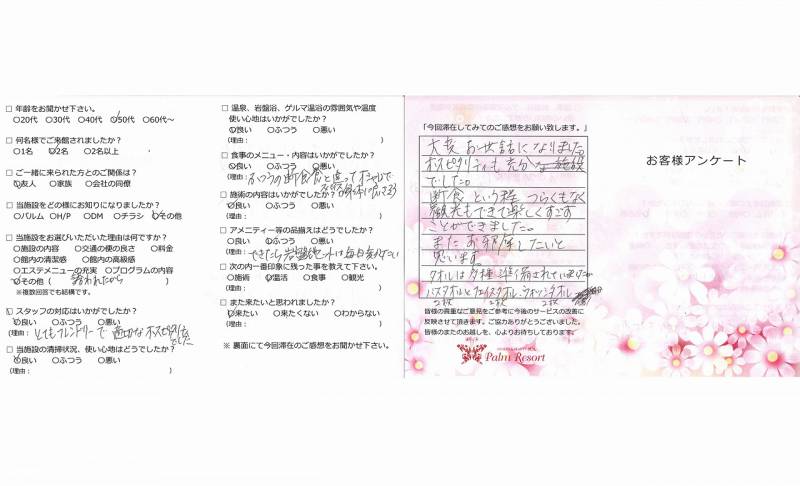 □ 年齢をお聞かせ下さい。
○20代 ○30代 ○40代 ○50代 ○60代～
□ 何名様でご来館されましたか？
○1名 ○2名 ○2名以上
□ ご一緒に来られた方とのご関係は？
○友人 ○家族 ○会社の同僚
□ 当施設をどの様にお知りになりましたか？
○パルム ○H/P ○DM ○チラシ ○その他
□ 当施設をお選びいただいた理由は何ですか？
○施設の内容 ○交通の便の良さ ○料金
○館内の清潔感 ○館内の高級感
○エステメニューの充実 ○プログラムの内容
○その他（ 誘われたから ）
※複数回答でも結構です。
□ スタッフの対応はいかがでしたか？
○良い ○ふつう ○悪い
(理由： とてもフレンドリーで 適切なホスピタリティでした
□ 当施設の清掃状況、使い心地はどうでしたか？
○良い ○ふつう ○悪い
(理由： )
□ 温泉、岩盤浴、ゲルマ温浴の雰囲気や温度
使い心地はいかがでしたか？
○良い ○ふつう ○悪い
(理由： )
□ 食事のメニュー・内容はいかがでしたか？
○良い ○ふつう ○悪い
(理由： ふつうの断食食と違って
□ 施術の内容はいかがでしたか？
○良い ○ふつう ○悪い
(理由：
□ アメニティー等の品揃えはどうでしたか？
○良い ○ふつう ○悪い
(理由： できたら岩盤浴セットは毎日
□ 次の内一番印象に残った事を教えて下さい。
○施術 ○温活 ○食事 ○観光
(理由： )
□ また来たいと思われましたか？
○来たい ○来たくない ○わからない
(理由： )
※ 裏面にて今回滞在のご感想をお聞かせ下さい。
「今回滞在してみてのご感想をお願い致します。」
大変 お世話になりました。
ホスピタリティも充分な施設
でした。
断食 という程 つらくもなく
観光もできて楽しくすごす
ことができました。
また お邪魔したいと
思います。
タオルは多種準備されていました。
バスタオルとフェイスタオル、ウォッシュタオル
2枚 2枚 2枚
皆様の貴重なご意見をご参考に今後のサービスの改善に
反映させて頂きます。ご協力ありがとうございました。
皆様のまたのお越しを、心よりお待ちしております。
Palm Resort
お客様アンケート